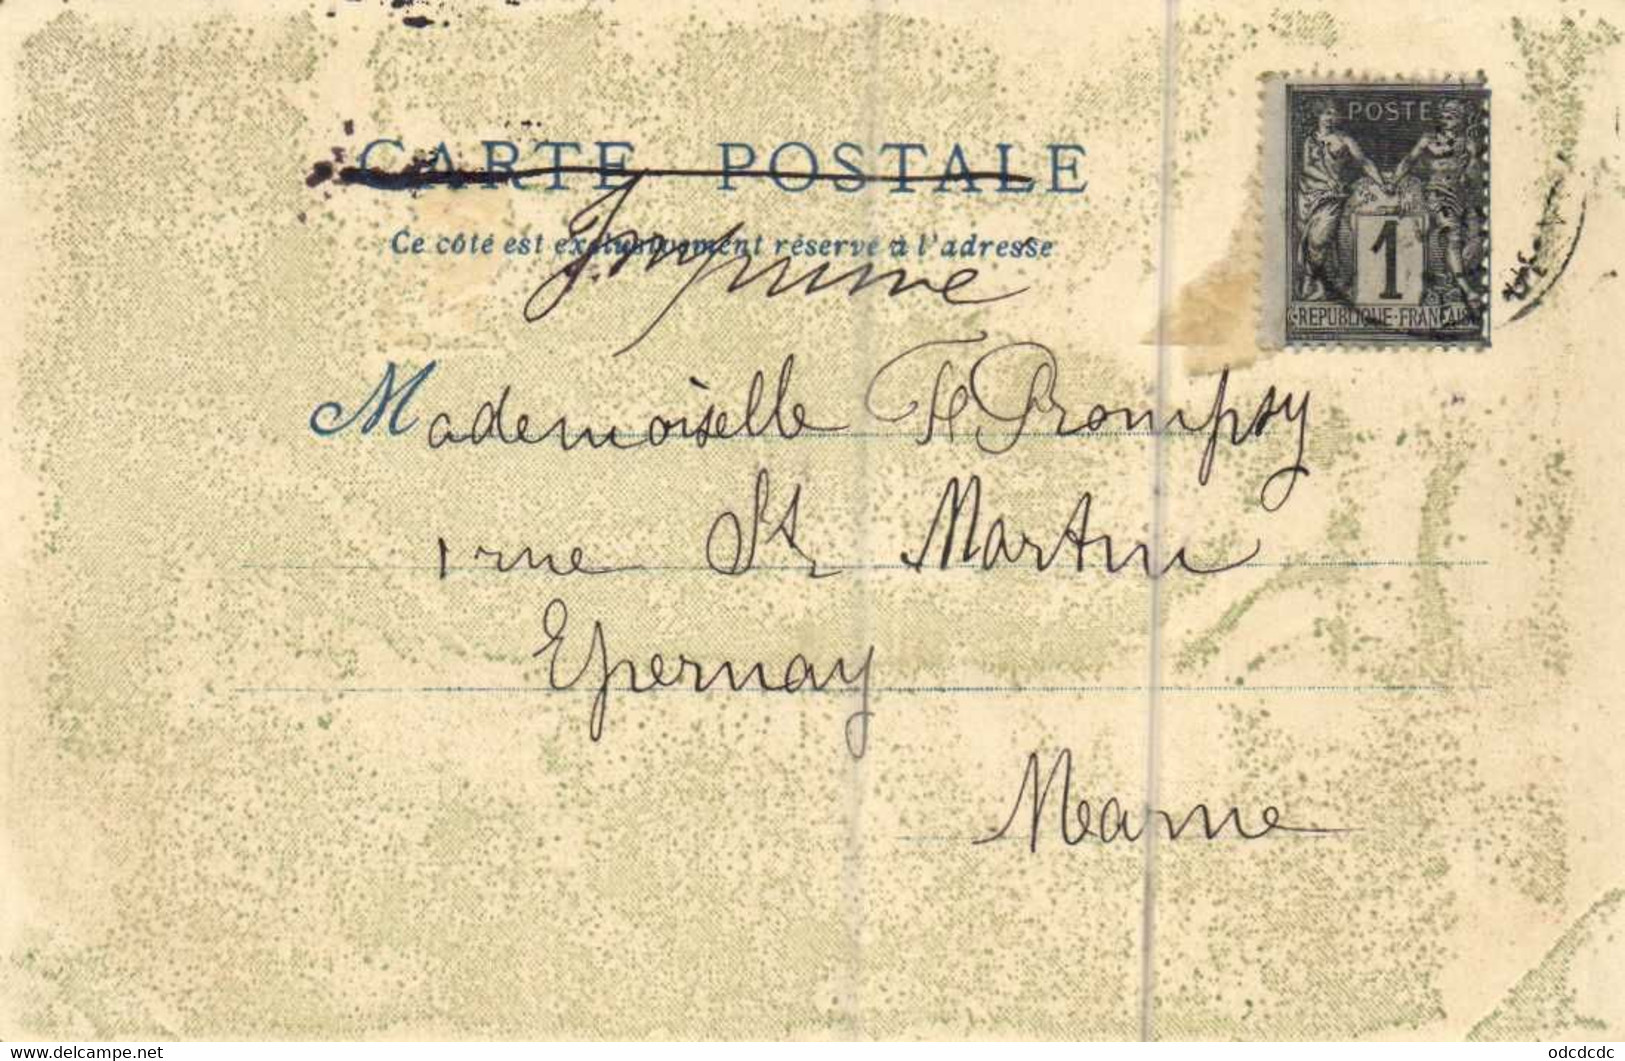 CARTE POSTALE
Ce côté est exclusivement réservé à l'adresse
Imprimé
POSTE
1
REPUBLIQUE FRANCAISE
Mademoiselle H Prompsy
1 rue St Martin
Epernay
Marne
www.delcampe.net
odcdcdc